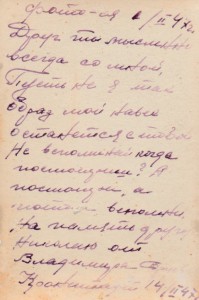 фото-ся 1/II 47г.
Друг ты мысленно
всегда со мной,
Пусть не я твой
образ мой навек
останется с тобой
Не вспоминай когда
посмотришь? А
посмотри, а
потом вспомни.
На память другу
Николаю от
Владимира
Кронштадт 14/II 47г